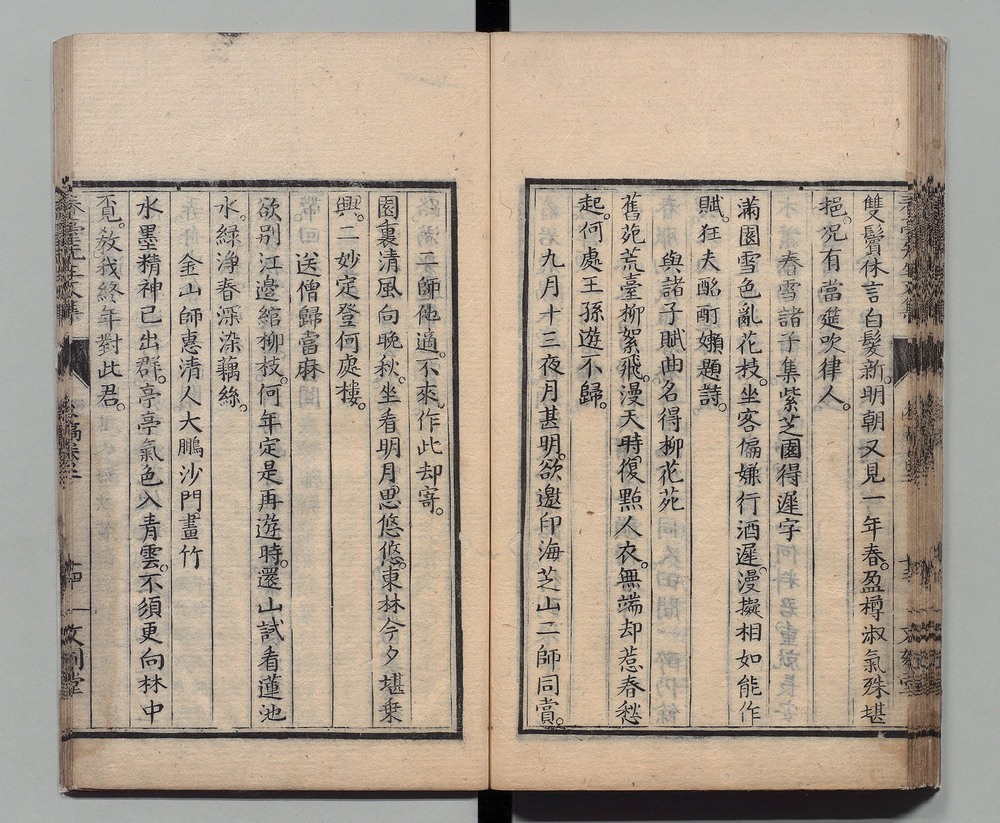 雙鬢休言白髮新。明朝又見一年春。盈樽淑氣殊堪
挹。况有當筵吹律人。
春雪諸子集紫芝園得遲字
滿園雪色亂花枝。坐客偏嫌行酒遲。漫擬相如能作
賦。狂夫酩酊嬾題詩。
與諸子賦曲名得柳花苑
舊苑荒臺柳絮飛。漫天時復點人衣。無端却惹春愁
起。何處王孫遊不歸。
九月十三夜月甚明。欲邀印海芝山二師同賞。
二師佗適。不來作此却寄。
園裏清風向晚秋。坐看明月思悠悠。東林今夕堪乗
興。二妙定登何處樓。
送僧歸當麻
欲別江邊綰柳枝。何年定是再遊時。還山試看蓮池
水。綠淨春深染藕絲。
金山師惠清人大鵬沙門畫竹
水墨精神已出群。亭亭氣色入青雲。不須更向林中
覓。教我終年對此君。
後稿卷之
十四